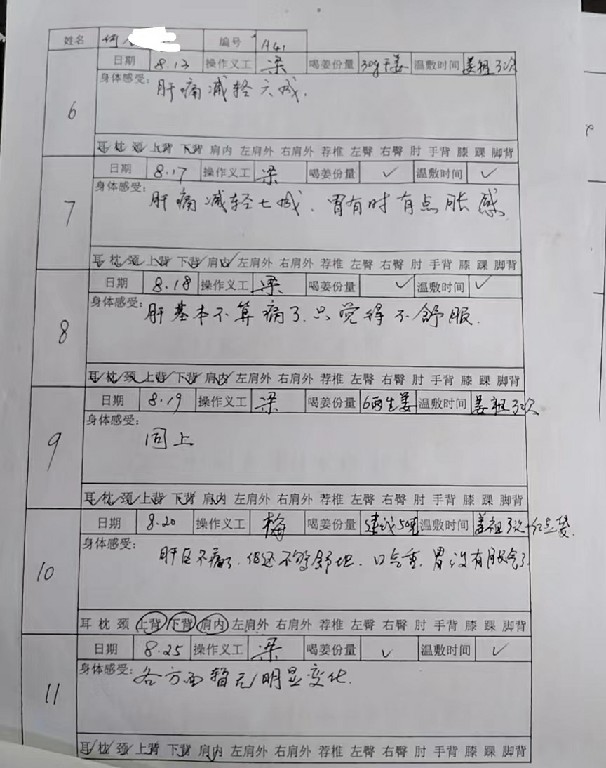 姓名 何 编号 A41
日期 8.13 操作义工 梁 喝姜份量 30g干姜 温敷时间 姜粗3次
6
身体感受:
肝痛减轻六成.
耳 枕 颈 上背 下背 肩内 左肩外 右肩外 荐椎 左臀 右臀 肘 手背 膝 踝 脚背
日期 8.17 操作义工 梁 喝姜份量 ✓ 温敷时间 ✓
7
身体感受:
肝痛减轻七成、胃有时有点胀感
耳 枕 颈 上背 下背 肩内 左肩外 右肩外 荐椎 左臀 右臀 肘 手背 膝 踝 脚背
日期 8.18 操作义工 梁 喝姜份量 ✓ 温敷时间 ✓
8
身体感受:
肝基本不算痛了.只觉得不舒服.
耳 枕 颈 上背 下背 肩内 左肩外 右肩外 荐椎 左臀 右臀 肘 手背 膝 踝 脚背
日期 8.19 操作义工 梁 喝姜份量 6两生姜 温敷时间 姜粗3次
9
身体感受:
同上
耳 枕 颈 上背 下背 肩内 左肩外 右肩外 荐椎 左臀 右臀 肘 手背 膝 踝 脚背
日期 8.20 操作义工 梅 喝姜份量 建议50克 温敷时间 姜粗3次+红豆袋
10
身体感受:
肝区不痛了.但还不够舒坦.口气重.胃没有胀食了.
耳 枕 颈 上背 下背 肩内 左肩外 右肩外 荐椎 左臀 右臀 肘 手背 膝 踝 脚背
日期 8.25 操作义工 梁 喝姜份量 ✓ 温敷时间 ✓
11
身体感受:
各方面暂无明显变化.
耳 枕 颈 上背 下背 肩内 左肩外 右肩外 荐椎 左臀 右臀 肘 手背 膝 踝 脚背